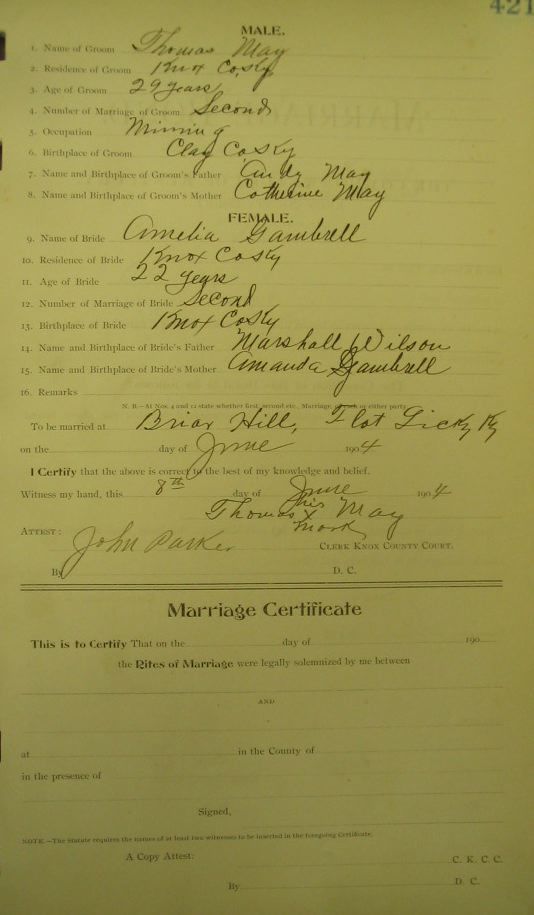 421
MALE.
1. Name of Groom Thomas May
2. Residence of Groom Knox Co Ky
3. Age of Groom 29 years
4. Number of Marriage of Groom Second
5. Occupation Mining
6. Birthplace of Groom Clay Co Ky
7. Name and Birthplace of Groom's Father Andy May
8. Name and Birthplace of Groom's Mother Catherine May
FEMALE.
9. Name of Bride Amelia Gambrell
10. Residence of Bride Knox Co Ky
11. Age of Bride 22 years
12. Number of Marriage of Bride Second
13. Birthplace of Bride Knox Co Ky
14. Name and Birthplace of Bride's Father Marshall Wilson
15. Name and Birthplace of Bride's Mother Amanda Gambrell
16. Remarks
N. B.—At Nos. 4 and 12 state whether first, second etc., Marriage, of each or either party.
To be married at Briar Hill, Flat Lick, Ky
on the day of June 1904
I Certify that the above is correct to the best of my knowledge and belief.
Witness my hand, this 8th day of June 1904
Thomas his X mark May
ATTEST: John Parker CLERK KNOX COUNTY COURT.
By D. C.
Marriage Certificate
This is to Certify That on the day of 190
the Rites of Marriage were legally solemnized by me between
AND
at in the County of
in the presence of
Signed,
NOTE.—The Statute requires the names of at least two witnesses to be inserted in the foregoing Certificate.
A Copy Attest: C. K. C. C.
By D. C.